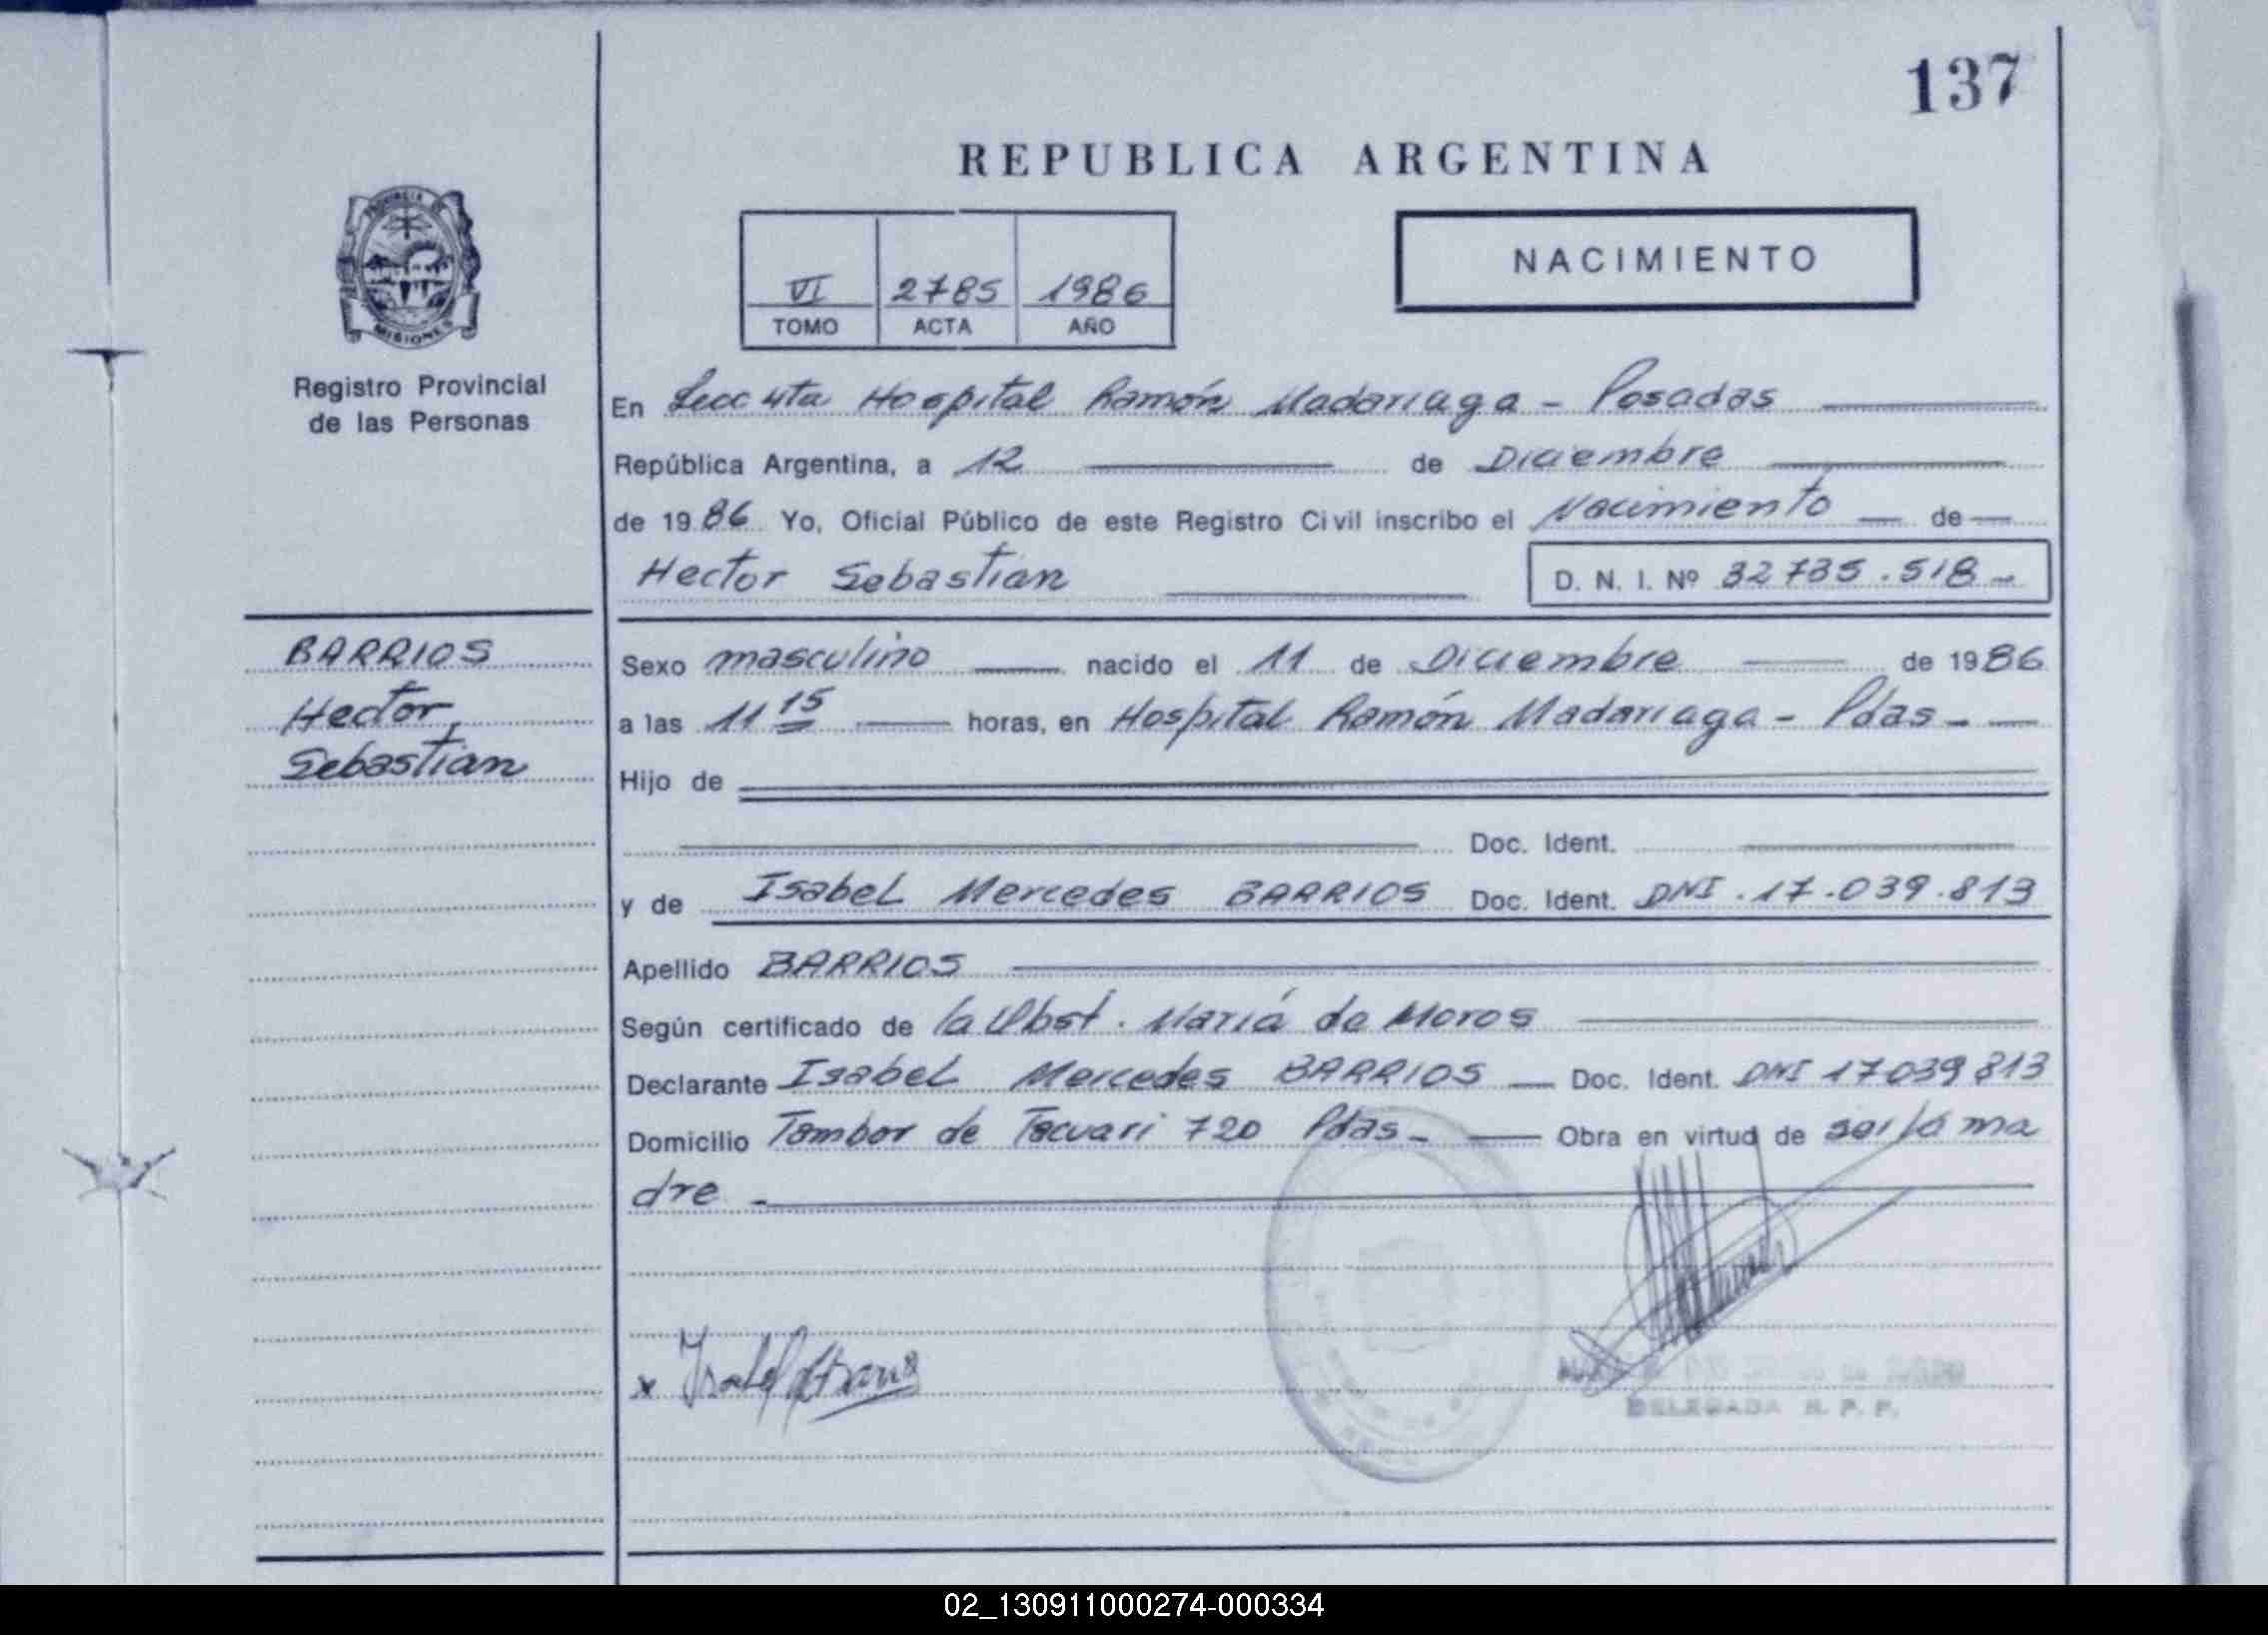 137
REPUBLICA ARGENTINA
PROVINCIA DE
MISIONES
Registro Provincial
de las Personas
VI 2785 1986
TOMO ACTA AÑO
NACIMIENTO
En Secc 4ta Hospital Ramón Madariaga - Posadas
República Argentina, a 12 de Diciembre
de 1986 Yo, Oficial Público de este Registro Civil inscribo el Nacimiento de
Hector Sebastian D. N. I. Nº 32735.518
BARRIOS
Hector,
Sebastian
Sexo masculino nacido el 11 de Diciembre de 1986
a las 11 15 horas, en Hospital Ramón Madariaga - Pdas
Hijo de
Doc. Ident.
y de Isabel Mercedes BARRIOS Doc. Ident. DNI.17.039.813
Apellido BARRIOS
Según certificado de la Obst. María de Moros
Declarante Isabel Mercedes BARRIOS Doc. Ident. DNI 17039813
Domicilio Tambor de Tacuari 720 Pdas Obra en virtud de ser la ma
dre
x Isabel Barrios
DELEGADA R. P. P.
02_130911000274-000334